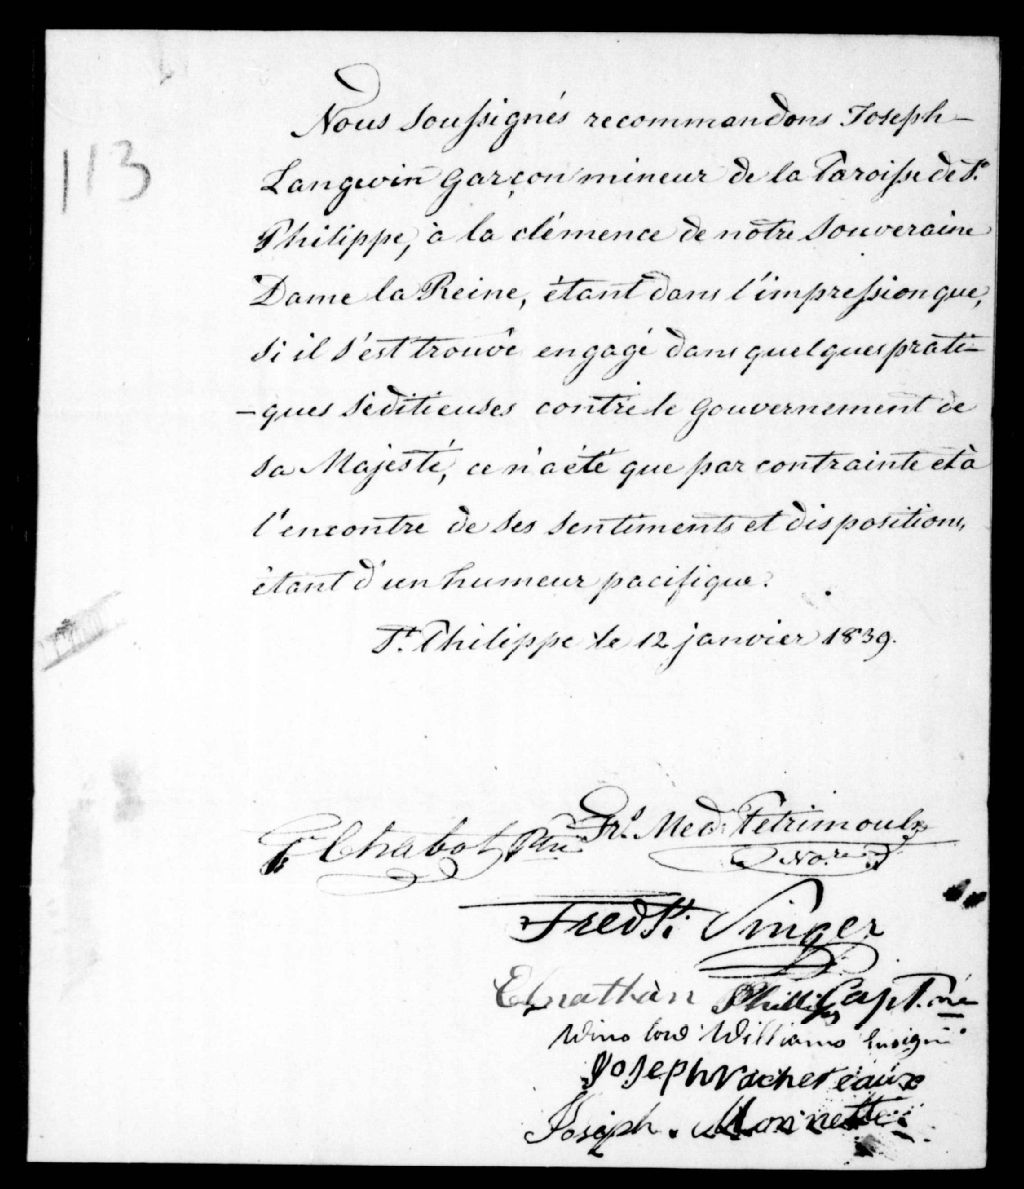 113
Nous soussignés recommandons Joseph
Langevin garçon mineur de la Paroisse de St.
Philippe, à la clémence de nôtre Souveraine
Dame la Reine, étant dans l'impression que,
si il s'est trouvé engagé dans quelques prati-
-ques séditieuses contre le gouvernement de
sa Majesté, ce n'a été que par contrainte et à
l'encontre de ses sentiments et dispositions,
étant d'un humeur pacifique.
St. Philippe le 12 janvier 1839.
Frs. Med. Pétrimoulx
Chabot Ptre
No.re
Fredk. Singer
Elnathan Phillips Capt.ne
Williams Ensign
Joseph vacheréaux
Joseph Monnette